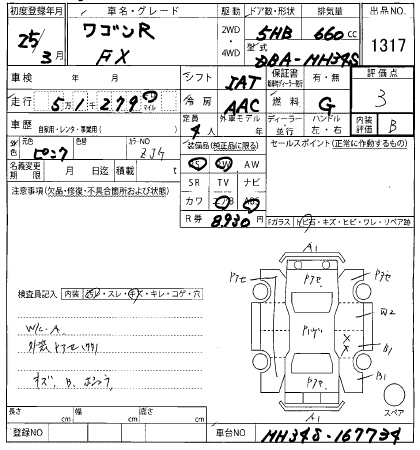 初度登録年月 車名・グレード 駆動 ドア数・形状 排気量 出品NO
25年 3月
ワゴンR
FX
2WD
4WD
5HB 660cc
型式 DBA-MH34S
1317
車検 年 月 シフト IAT 保証書 有・無 評価点
走行 5万1千279 km マイル 冷房 AAC 燃料 G 3
車歴 自家用・レンタ・事業用( ) 定員 4人 外車モデル 年 ディーラー・並行 ハンドル 左・右 内装評価 B
外色 元色 ピンク 色替 カラーNO ZJ4
装備品(純正品に限る)
PS PW AW
SR TV ナビ
カワ エアB ABS
R券 8,930円
セールスポイント(正常に作動するもの)
名義変更期限 月 日迄 積載 t
注意事項(欠品・修復・不具合箇所および状態)
Fガラス トビ石・キズ・ヒビ・ワレ・リペア跡
検査員記入 内装 ヨゴレ・スレ・キズ・キレ・コゲ・穴
W/C-A
A1
アセ
アセ
W2
B1
B1
アセ
A1
スペア
長さ cm 幅 cm 高さ cm
登録NO 車台NO MH34S-167734